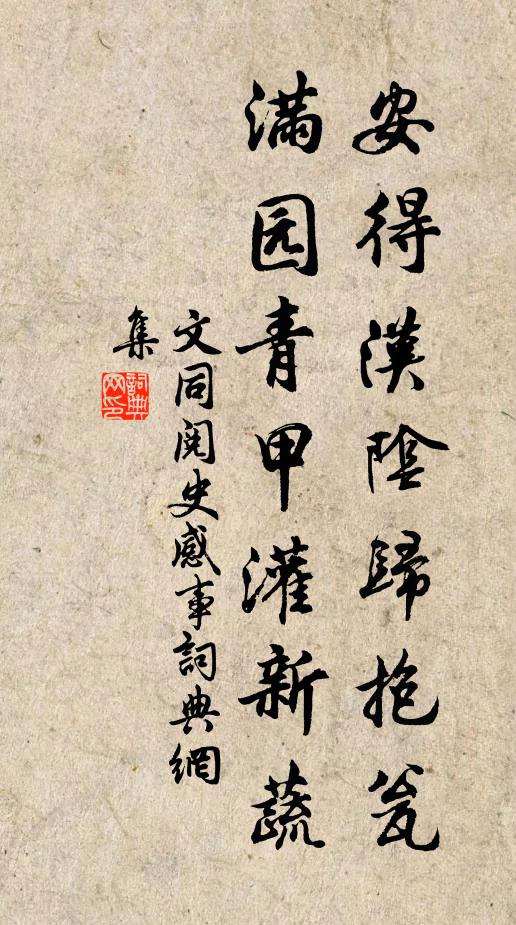 安得漢陰歸抱瓮
满园青甲灌新蔬
文同阅史感事詞典網
集
詞典网印